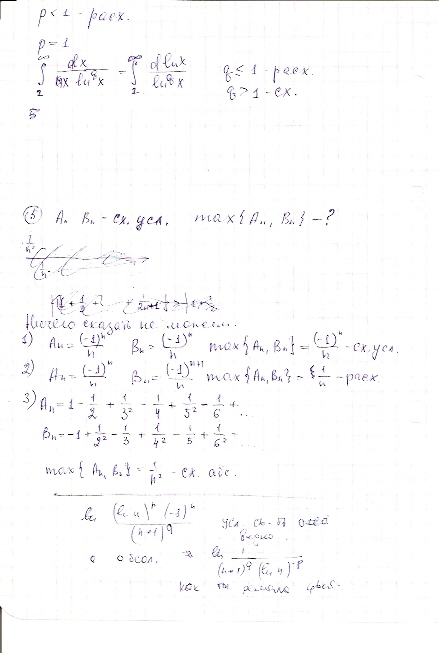 p < 1 - расх.
p = 1
∫₂^∞ dx / (x ln^q x) = ∫₂^∞ d ln x / ln^q x    q ≤ 1 - расх.
q > 1 - сх.
5
⑤ Aₙ Bₙ - сх. усл. max{Aₙ, Bₙ} - ?
Ничего сказать не можем.
1) Aₙ = (-1)ⁿ/n  Bₙ = (-1)ⁿ/n  max{Aₙ, Bₙ} = (-1)ⁿ/n - сх. усл.
2) Aₙ = (-1)ⁿ/n  Bₙ = (-1)ⁿ⁺¹/n  max{Aₙ, Bₙ} = {1/n - расх
3) Aₙ = 1 - 1/2 + 1/3² - 1/4 + 1/5² - 1/6 + ...
Bₙ = -1 + 1/2² - 1/3 + 1/4² - 1/5 + 1/6² - ...
max{Aₙ, Bₙ} = 1/n² - сх. абс.
(ln n)^p (-1)ⁿ / (n+1)^q  усл. сх-ть
видно.
о абсол. ⇒ 1 / ((n+1)^q (ln n)^-p)
как ты